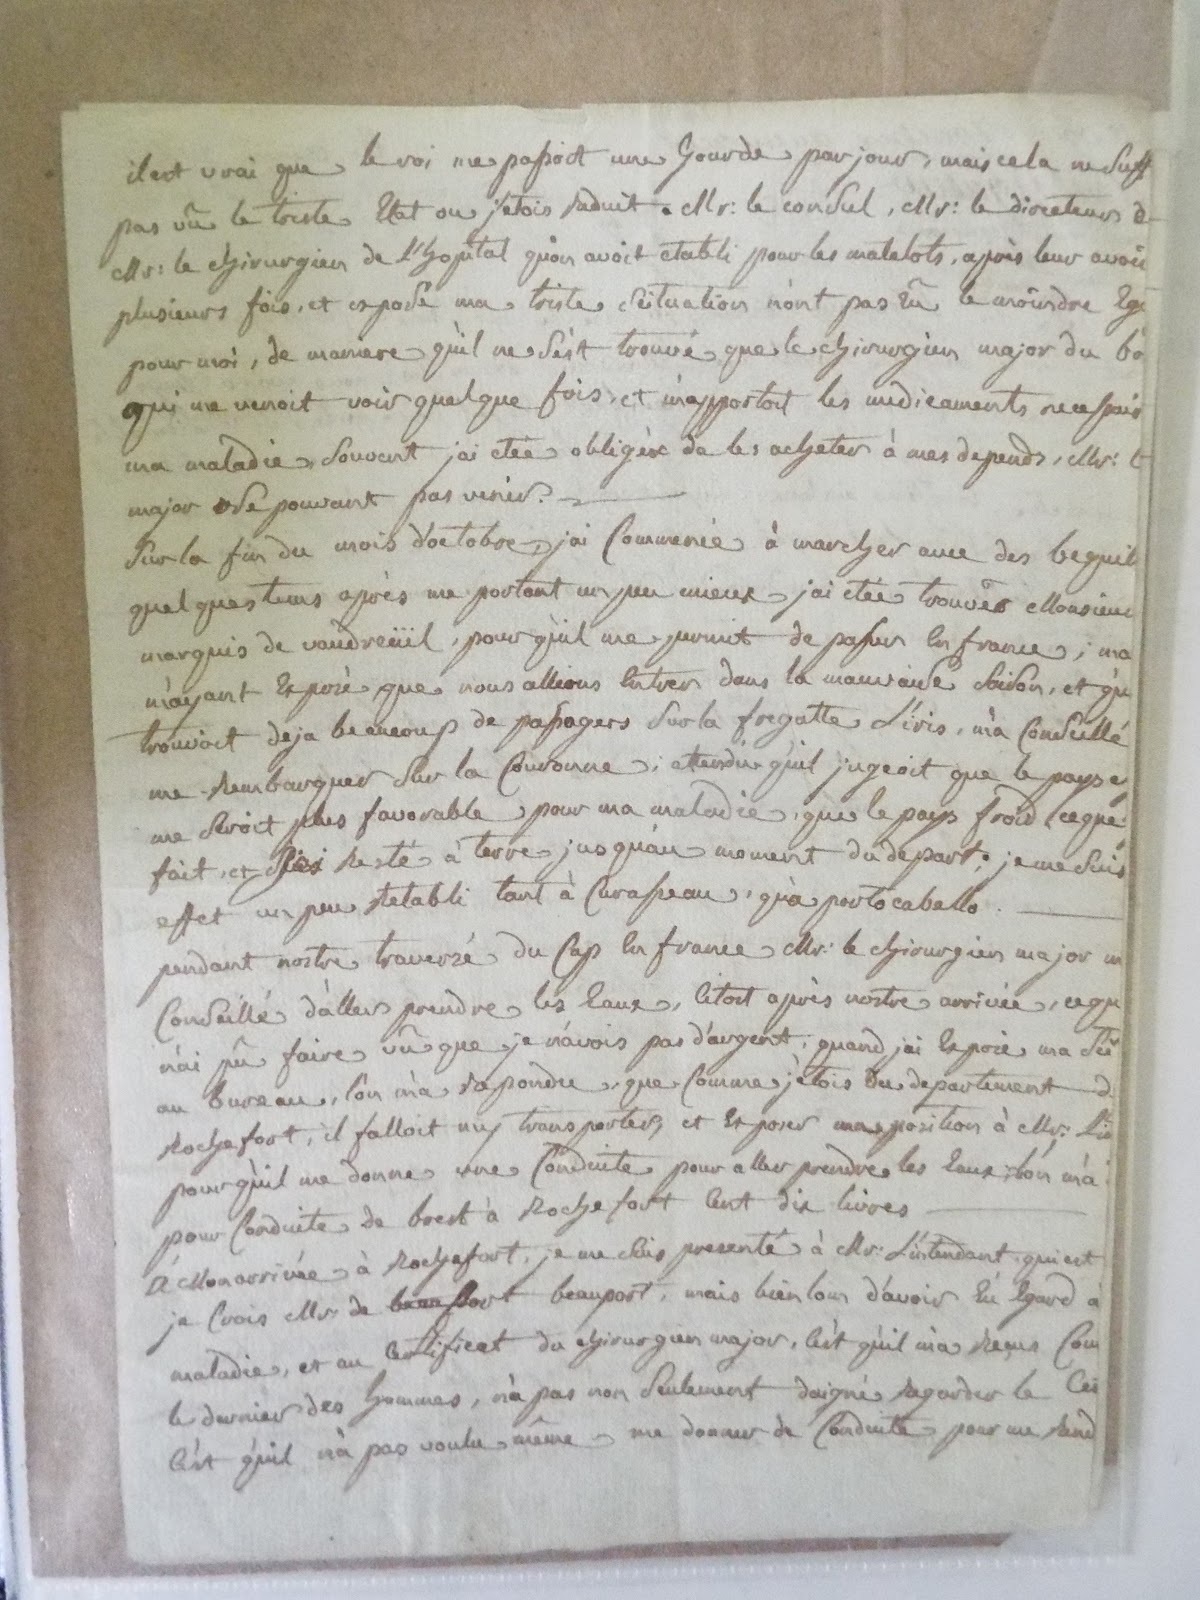 il est vrai que le roi me passoit une Gourde par jour, mais cela ne suff
pas vû le triste Etat ou j'etois raduit. Mr: le consul, Mr: le directeur d
Mr: le chirurgien de l'hopital qu'on avoit etabli pour les matelots, après leur avoir
plusieurs fois, et exposé ma triste situation n'ont pas Eû le moindre Ega
pour moi, de maniere qu'il ne s'est trouvé que le chirurgien major du bo
qui me venoit voir quelque fois, et m'apportoit les medicaments necessair
ma maladie, souvent j'ai etée obligée de les acheter à mes depends, Mr: l
major se pouvant pas venir.
Sur la fin du mois d'octobre, j'ai Commencé à marcher avec des bequil
quelques tems après me portant un peu mieux j'ai etée trouver Monsieur
marquis de vaudreüil, pour qu'il me permit de passer En france, ma
m'ayant Exposé que nous allions Entrer dans la mauvaise saison, et qu'
trouvoit deja beaucoup de passagers sur la fregatte L'iris, m'a Conseillé
me Rembarquer sur la Couronne, attendu qu'il jugeoit que le pays
me seroit plus favorable pour ma maladie, que le pays froid, ce que
fait, et Resté à terre jusqu'au moment du depart, je me suis
effet un peu Retabli tant à Curasseau, qu'a portocabello.
pendant nostre traversé du Cap En france Mr: le chirurgien major m
Conseillé d'aller prendre les Eaux, C'etoit après nostre arrivée, ce qu
n'ai pû faire vû que je n'avois pas d'argent, quand j'ai Exposé ma sit
au bureau, l'on m'a raponduu que Comme j'etois du departement d
Rochefort, il falloit m'y transporter, et Exposer ma position à Mr: L'in
pour qu'il me donne une Conduite pour aller prendre les Eaux, l'on m'a
pour Conduite de brest à Rochefort Cent dix livres
À Mon arrivée à Rochefort, je me suis presenté à Mr: L'intendant qui est
je Crois Mr: de beauport, mais bien loin d'avoir Eû Egard à
maladie, et au Certificat du chirurgien major, C'est qu'il m'a Reçus Com
le dernier des hommes, n'a pas non seulement daigné Regarder le Cer
C'est qu'il n'a pas voulu même me donner de Conduite pour me Rend